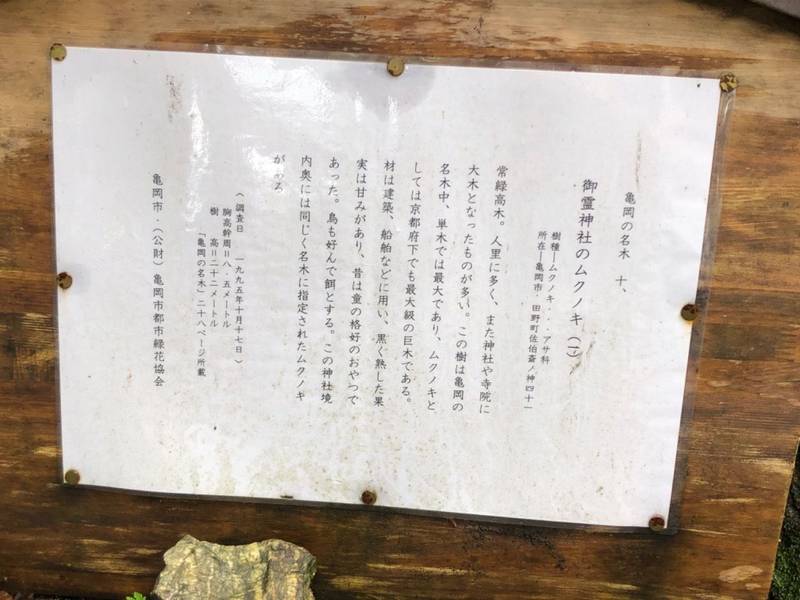 亀岡の名木　十、
御霊神社のムクノキ（一）
樹種―ムクノキ・・・アサ科
所在―亀岡市・田野町佐伯斎ノ神四十一
常緑高木。人里に多く、また神社や寺院に
大木となったものが多い。この樹は亀岡の
名木中、単木では最大であり、ムクノキと
しては京都府下でも最大級の巨木である。
材は建築、船舶などに用い、黒く熟した果
実は甘みがあり、昔は童の格好のおやつで
あった。鳥も好んで餌とする。この神社境
内奥には同じく名木に指定されたムクノキ
が
る
（調査日　一九九五年十月十七日）
胸高幹周＝八・五メートル
樹　　高＝二十二メートル
「亀岡の名木」二十八ページ所載
亀岡市・（公財）亀岡市都市緑花協会